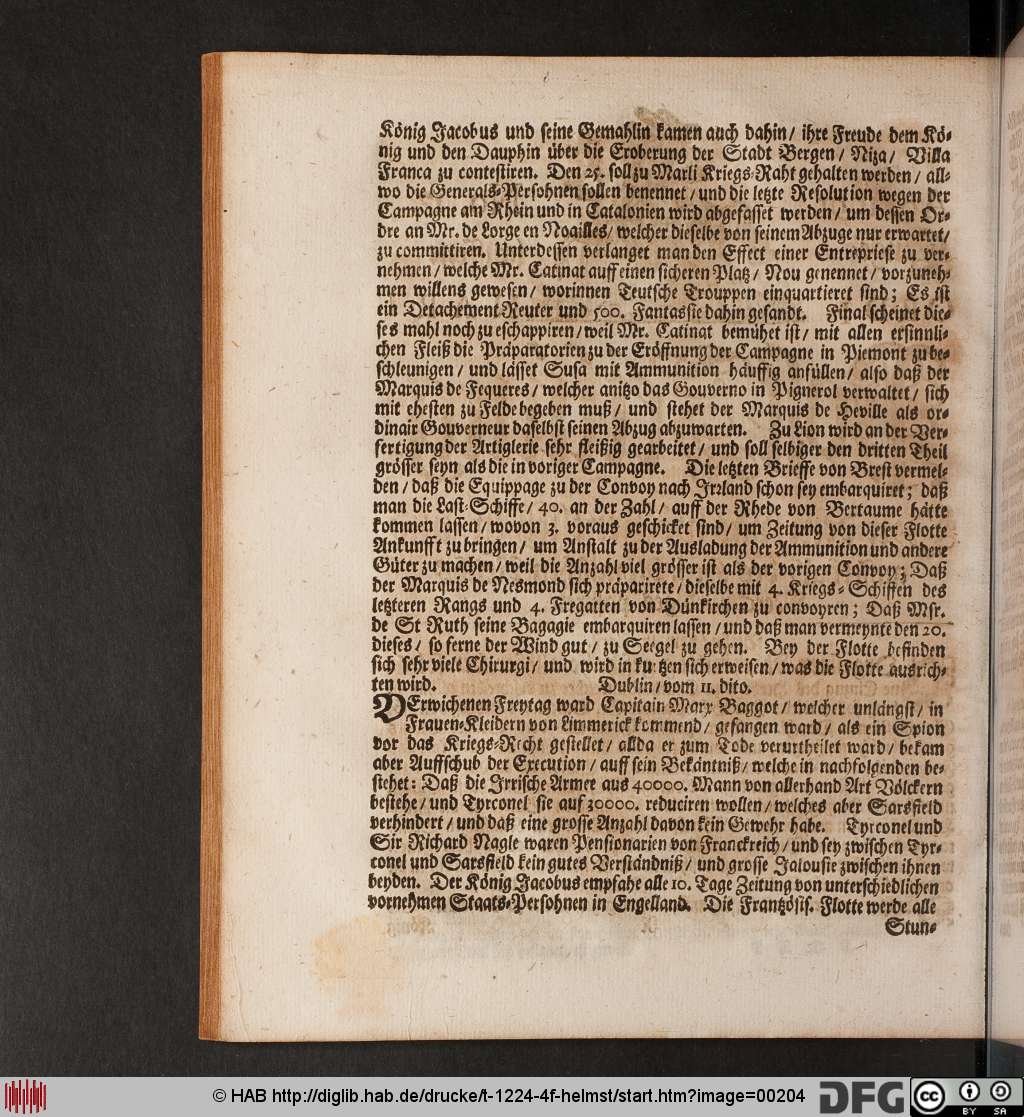 König Jacobus und seine Gemahlin kamen auch dahin/ ihre Freude dem Kö-
nig und den Dauphin über die Eroberung der Stadt Bergen/ Niza/ Villa
Franca zu contestiren. Den 25. soll zu Marli Kriegs-Raht gehalten werden/ all-
wo die Generals-Persohnen sollen benennet/ und die letzte Resolution wegen der
Campagne am Rhein und in Catalonien wird abgefasset werden/ um dessen Or-
dre an Mr. de Lorge en Noailles/ welcher dieselbe von seinem Abzuge nur erwartet/
zu committiren. Unterdessen verlanget man den Effect einer Entrepriese zu ver-
nehmen/ welche Mr. Catinat auff einen sicheren Platz/ Nou genennet/ vorzuneh-
men willens gewesen/ worinnen Teutsche Trouppen einquartieret sind; Es ist
ein Detachement Reuter und 500. Fantassie dahin gesandt. Final scheinet die-
ses mahl noch zu eschappiren/ weil Mr. Catinat bemühet ist/ mit allen ersinnli-
chen Fleiß die Präparatorien zu der Eröffnung der Campagne in Piemont zu be-
schleunigen/ und lässet Susa mit Ammunition häuffig anfüllen/ also daß der
Marquis de Fequeres/ welcher anitzo das Gouverno in Pignerol verwaltet/ sich
mit ehesten zu Felde begeben muß/ und stehet der Marquis de Heville als or-
dinair Gouverneur daselbst seinen Abzug abzuwarten. Zu Lion wird an der Ver-
fertigung der Artiglerie sehr fleißig gearbeitet/ und soll selbiger den dritten Theil
grösser seyn als die in voriger Campagne. Die letzten Brieffe von Brest vermel-
den/ daß die Equippage zu der Convoy nach Irrland schon sey embarquiret; daß
man die Last-Schiffe/ 40. an der Zahl/ auff der Rhede von Bertaume hätte
kommen lassen/ wovon 3. voraus geschicket sind/ um Zeitung von dieser Flotte
Ankunfft zu bringen/ um Anstalt zu der Ausladung der Ammunition und andere
Güter zu machen/ weil die Anzahl viel grösser ist als der vorigen Convoy; Daß
der Marquis de Nesmond sich präparirete/ dieselbe mit 4. Kriegs-Schiffen des
letzteren Rangs und 4. Fregatten von Dünkirchen zu convoyren; Daß Msr.
de St Ruth seine Bagagie embarquiren lassen/ und daß man vermeynte den 20.
dieses/ so ferne der Wind gut/ zu Seegel zu gehen. Bey der Flotte befinden
sich sehr viele Chirurgi/ und wird in kurtzen sich erweisen/ was die Flotte ausrich-
ten wird. Dublin/ vom 11. dito.
VErwichenen Freytag ward Capitain Marx Baggot/ welcher unlängst/ in
Frauen-Kleidern von Limmerick kommend/ gefangen ward/ als ein Spion
vor das Kriegs-Recht gestellet/ allda er zum Tode verurtheilet ward/ bekam
aber Auffschub der Execution/ auff sein Bekäntniß/ welche in nachfolgenden be-
stehet: Daß die Irrische Armee aus 40000. Mann von allerhand Art Völckern
bestehe/ und Tyrconel sie auf 30000. reduciren wollen/ welches aber Sarsfield
verhindert/ und daß eine grosse Anzahl davon kein Gewehr habe. Tyrconel und
Sir Richard Nagle waren Pensionarien von Franckreich/ und sey zwischen Tyr-
conel und Sarsfield kein gutes Verständniß/ und grosse Jalousie zwischen ihnen
beyden. Der König Jacobus empfahe alle 10. Tage Zeitung von unterschiedlichen
vornehmen Staats-Persohnen in Engelland. Die Frantzösis. Flotte werde alle
Stun-
© HAB http://diglib.hab.de/drucke/t-1224-4f-helmst/start.htm?image=00204
DFG
cc
BY SA